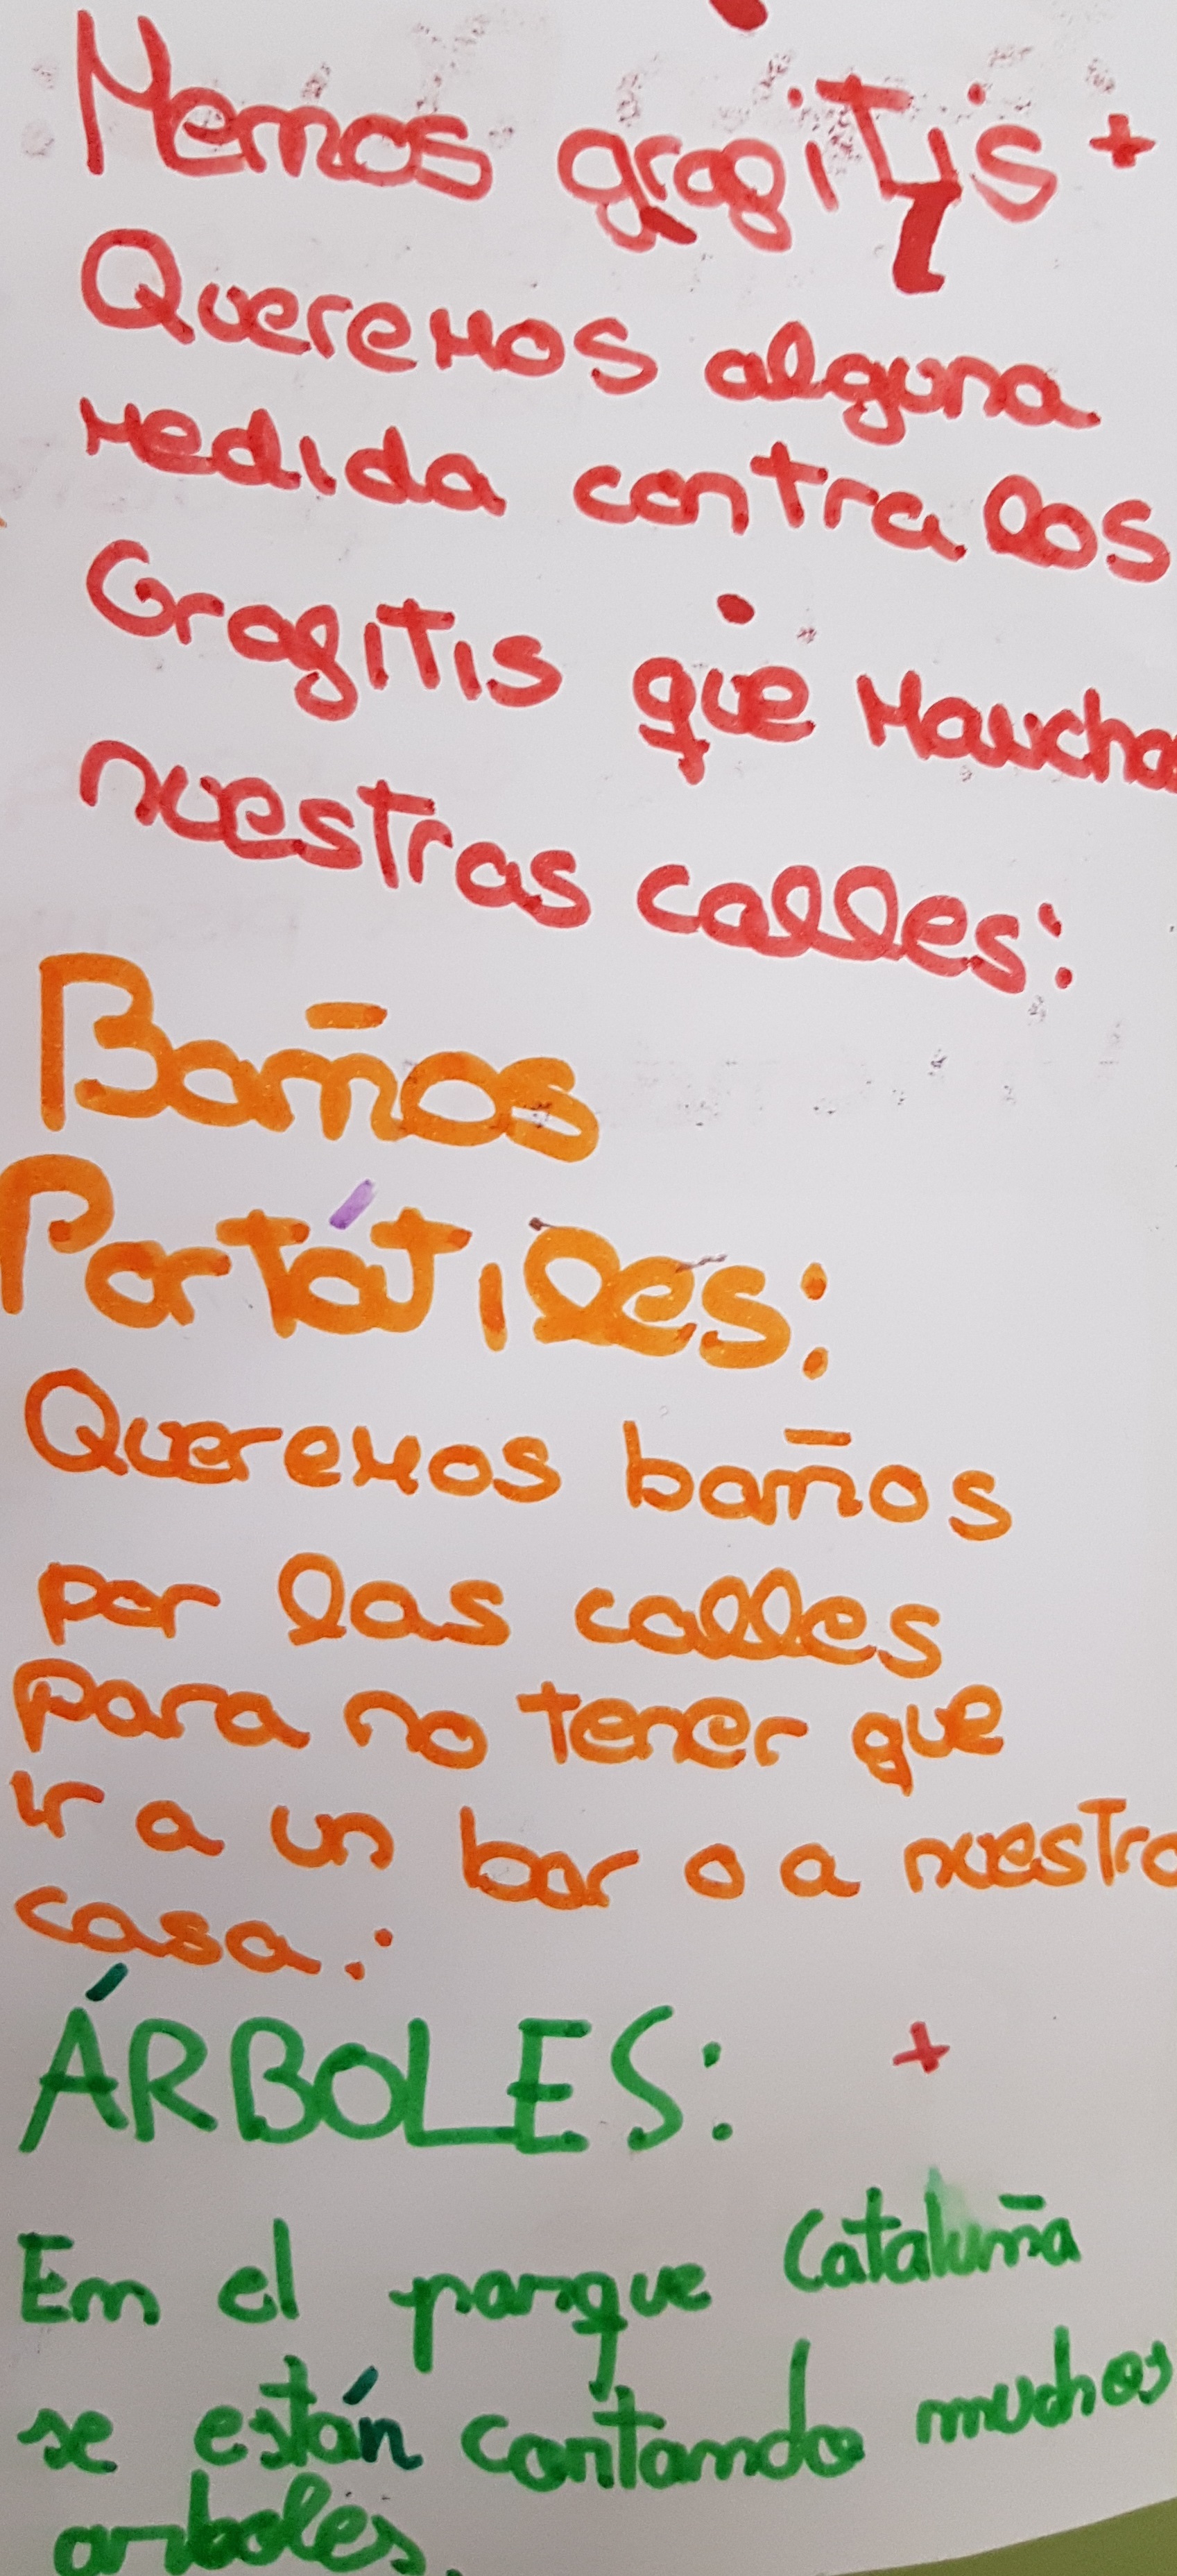 Menos gragitis +
Queremos alguna
medida contra los
Gragitis que Mancha
nuestras calles:
Baños
Portátiles:
Queremos baños
por las calles
para no tener que
ir a un bar o a nuestra
casa.:
ÁRBOLES: +
En el parque Cataluña
se están cortando muchos
arboles.